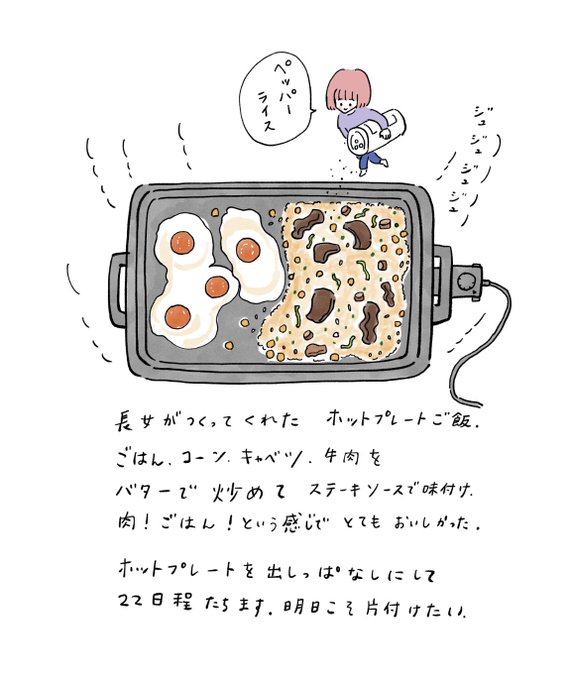 ペッパー
ライス
ジュ
ジュ
ジュ
ジュ
長女がつくってくれた ホットプレートご飯.
ごはん、コーン、キャベツ、牛肉を
バターで 炒めて ステーキソースで味付け.
肉!ごはん!という感じで とても おいしかった。
ホットプレートを 出しっぱなしにして
22日程 たちます。明日こそ 片付けたい.